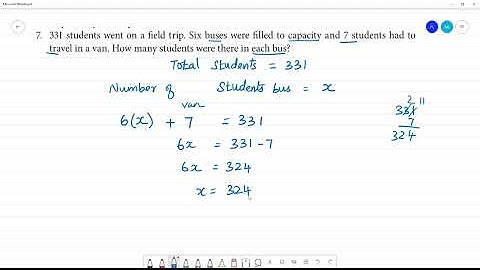 7. 331 students went on a field trip. Six buses were filled to capacity and 7 students had to
travel in a van. How many students were there in each bus?
Total Students = 331
Number of Students bus = x
van
6(x) + 7 = 331
6x = 331 - 7
6x = 324
x = 324
2 11
331
7
324